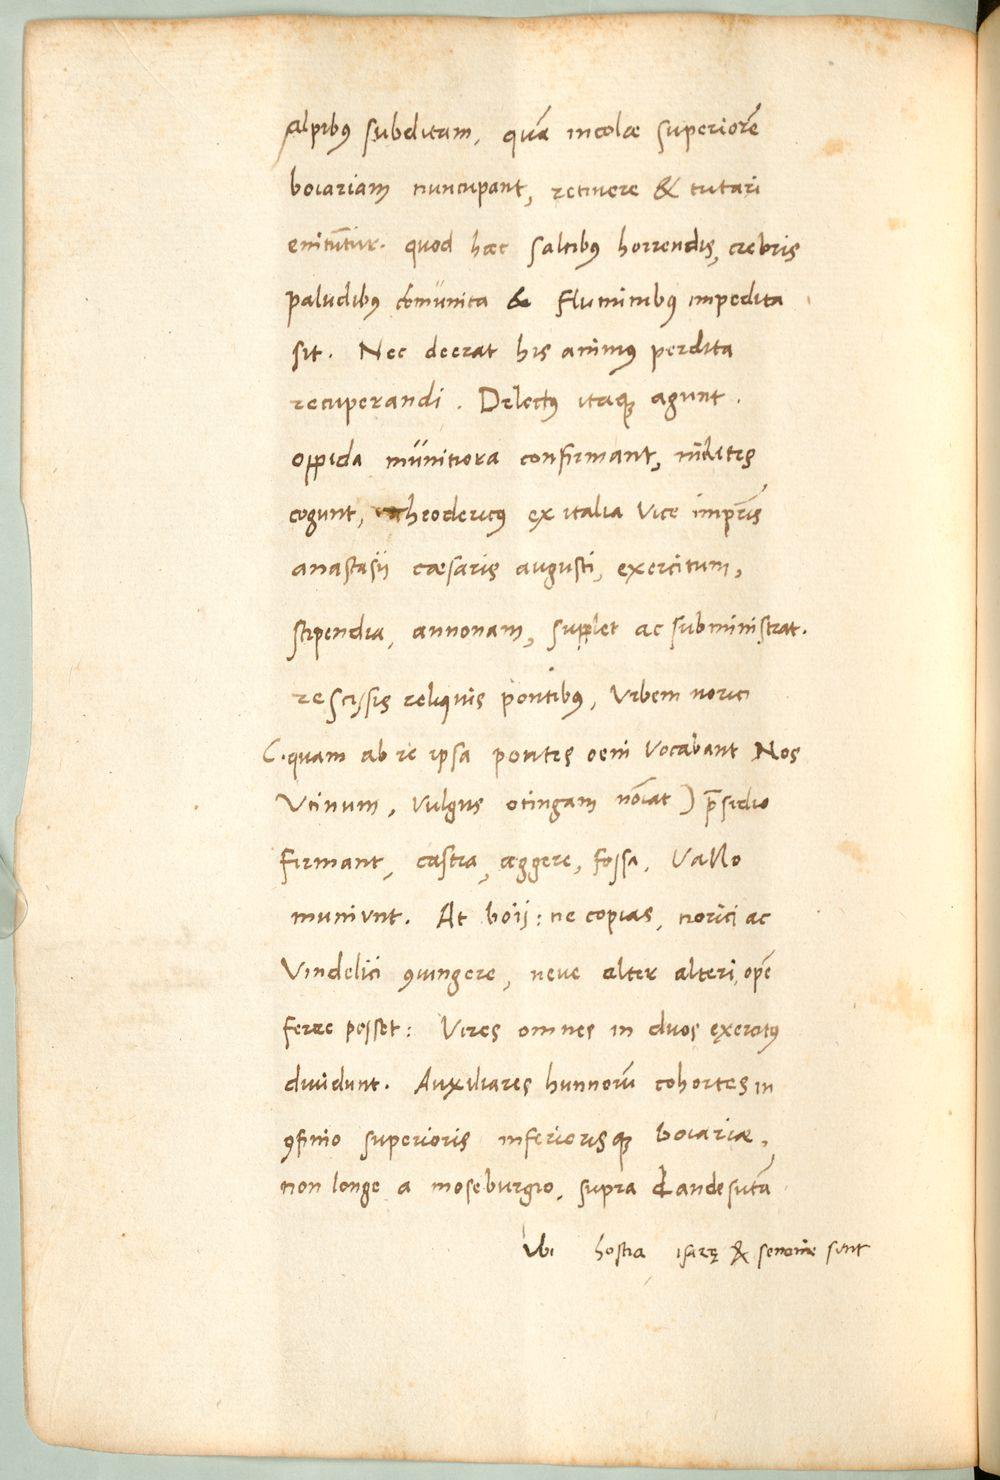 Alpibꝰ subditam, quā incolæ superiorē
boiariam nuncupant, retinere & tutari
enitūtur. quod hæc saltibꝰ horrendis, crebris
paludibꝰ cōmunita & fluminibꝰ impedita
sit. Nec deerat his animꝰ perdita
recuperandi. Delectꝰ itaqꝫ agunt.
oppida munitiora confirmant, milites
cogunt, theodericꝰ ex italia Vice
anastasii cæsaris augusti, exercitum,
stipendia, annonam, supplet ac subministrat.
rescissis reliquis pontibꝰ, Vrbem norici
(.quam ab re ipsa pontes oeni Vocabant Nos
Vtinum, Vulgus otingam nōiat ) p̄sidio
firmant, castra, aggere, fossa, Vallo
muniunt. At boii: ne copias, norici ac
Vindelici ꝯiungere, neve alter alteri opē
ferre posset: Vires omnes in duos exercitꝰ
diuidunt. Auxiliares hunnorū cohortes in
ꝯfinio superioris inferiorisqꝫ boiariæ,
non longe a moseburgio, supra Landesutā
Vbi hostia isarę & semoine sunt